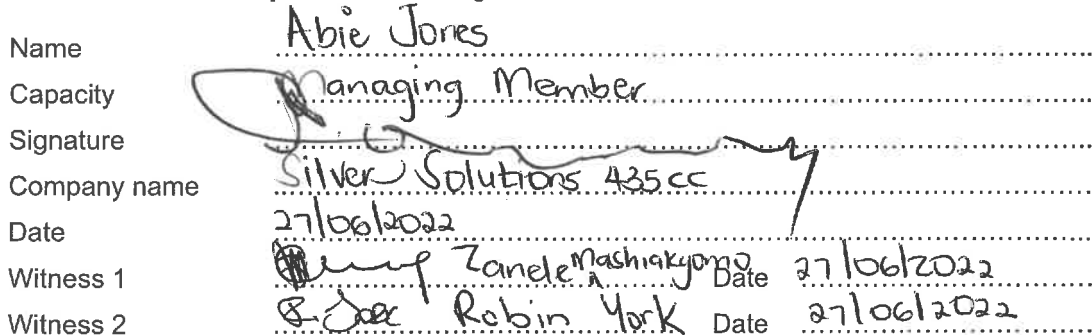 Name Abie Jones
Capacity Managing Member
Signature
Company name Silver Solutions 435cc
Date 27/06/2022
Witness 1 Zanele Mashiakgomo Date 27/06/2022
Witness 2 Robin York Date 27/06/2022